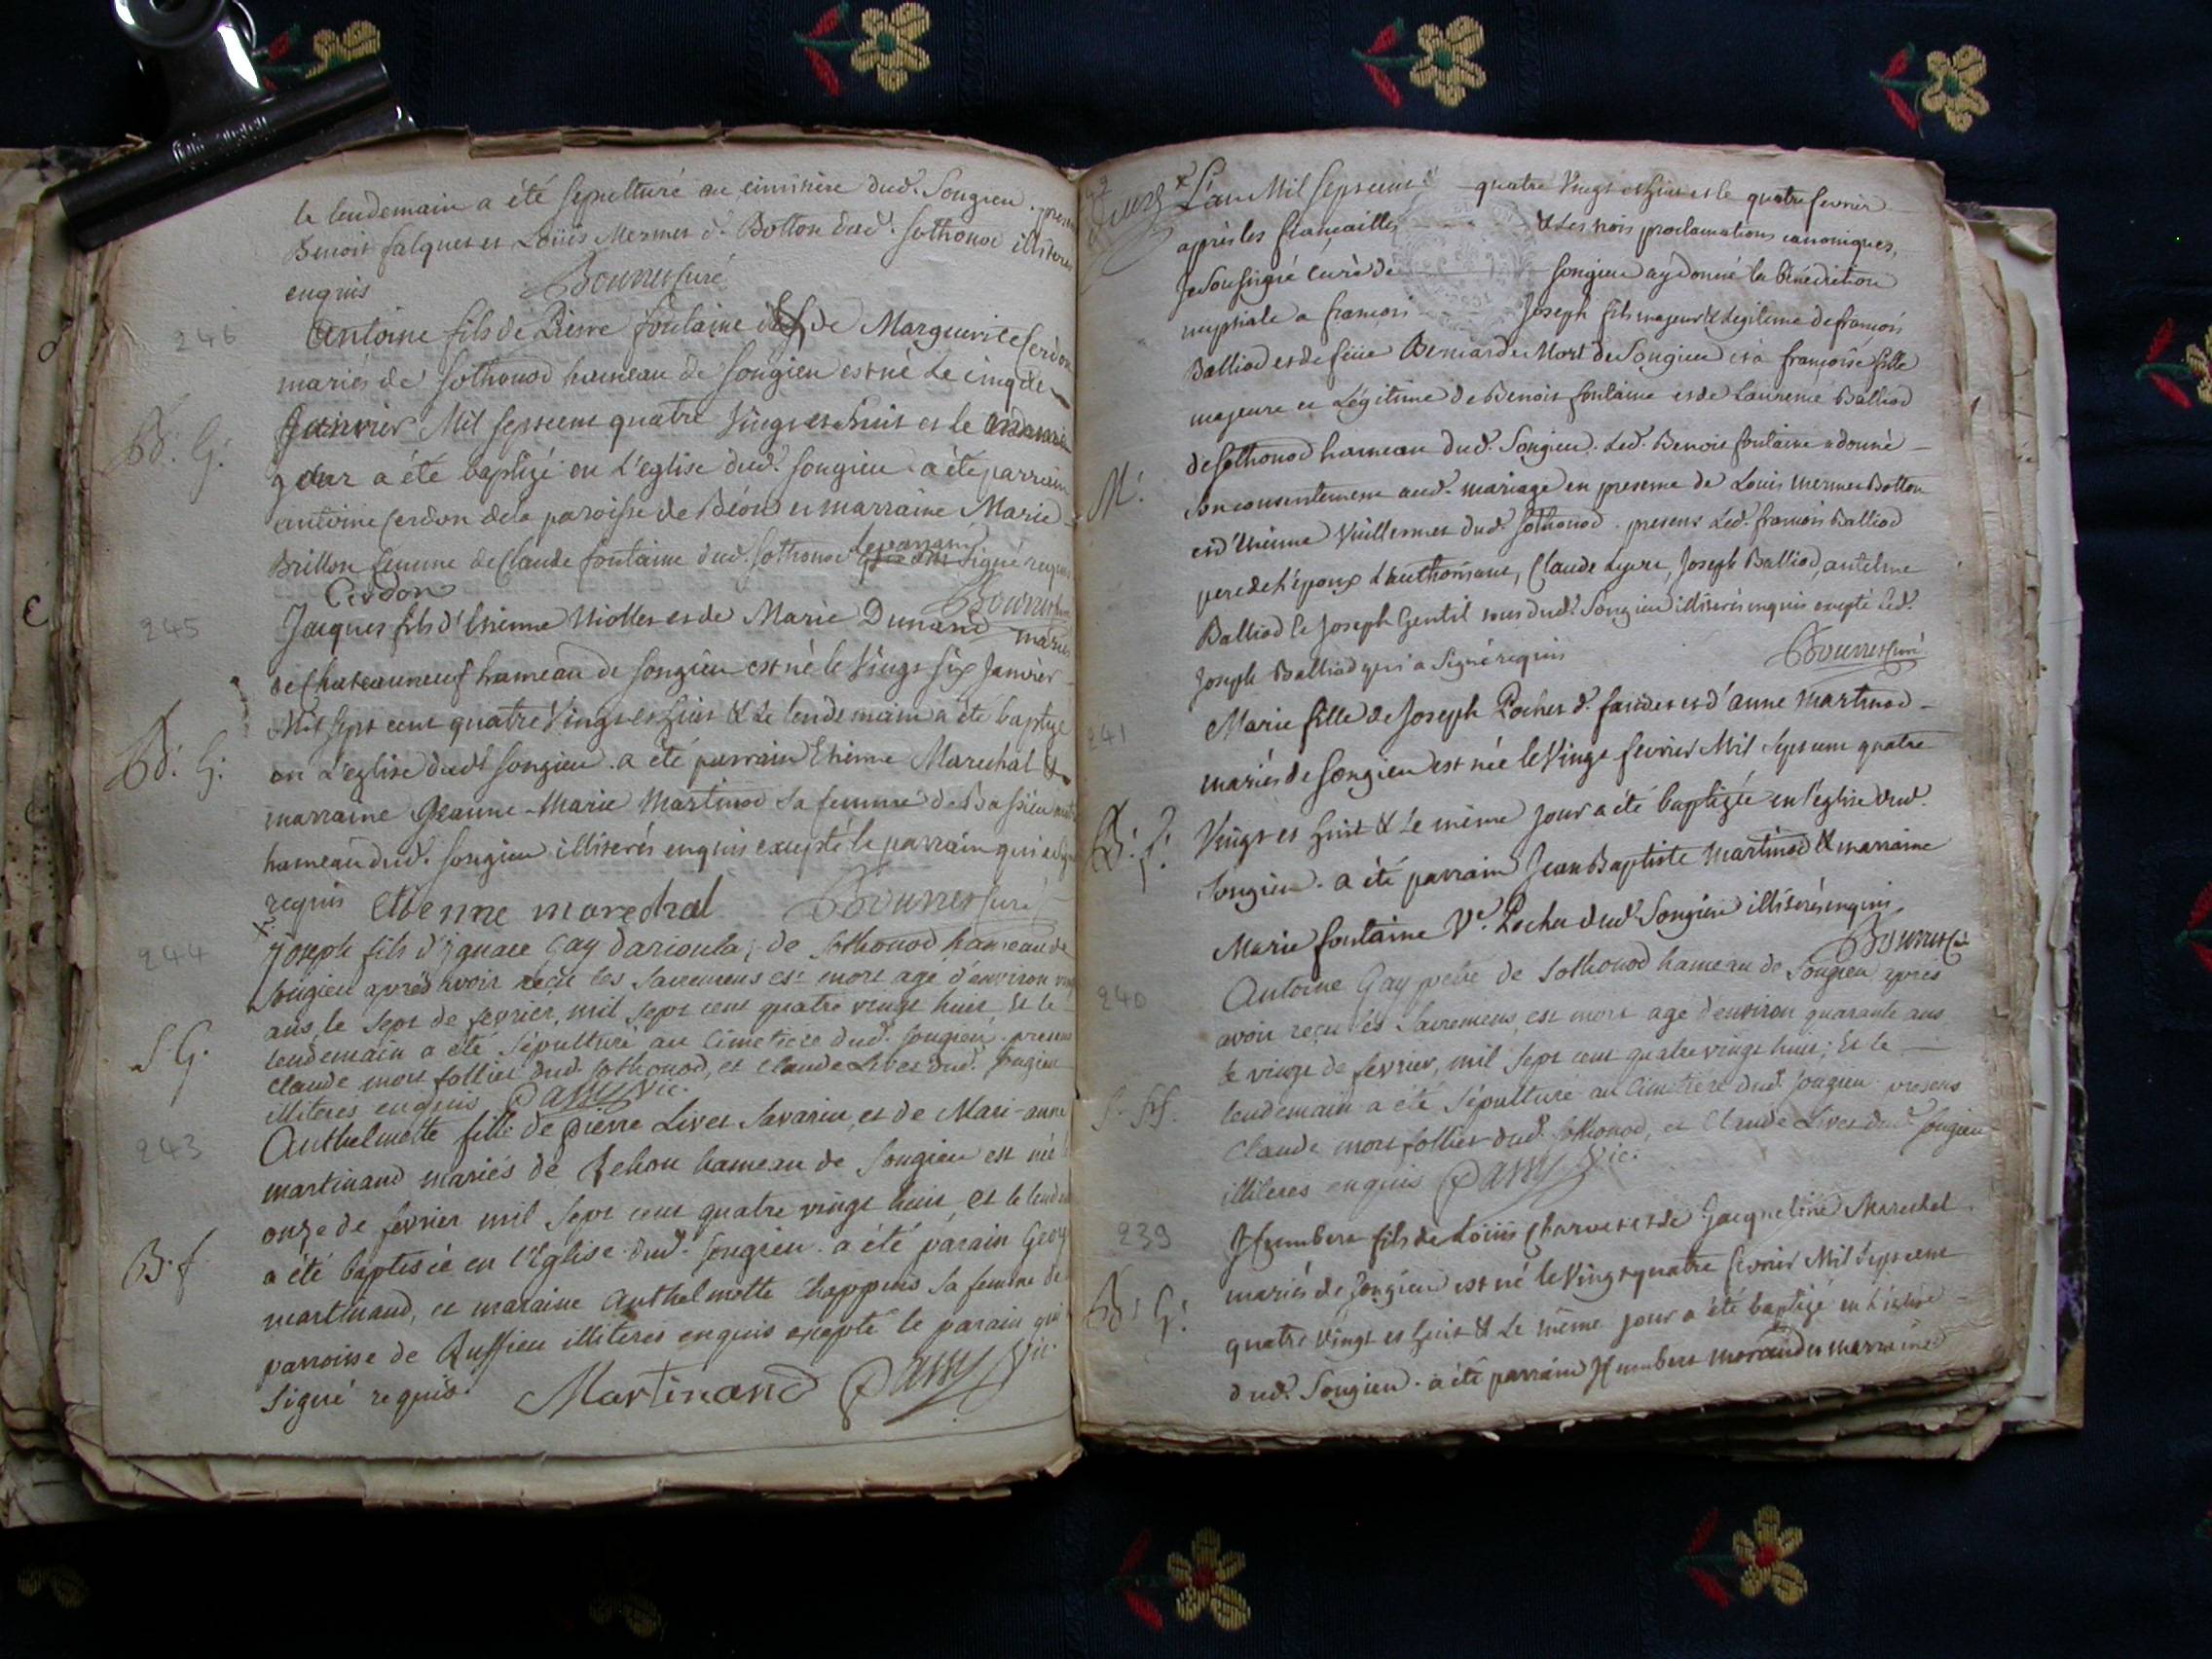 le lendemain a été sepulturé au cimitière dud. Songieu. 
Benoit falquet et Loüis Mermet d. Botton dud. Sothonod illiteres
enquis Bourret curé
246
Antoine fils de Pierre fontaine et de Marguerite Cerdon
mariés de Sothonod hameau de Songieu est né Le cinq de
B. G. Janvier Mil sept cent quatre Vingt et huit et le
jour a été baptizé en L'eglise dud. Songieu a été parrain
antoine Cerdon de la paroisse de Béons et marraine Marie
Brillon femme de Claude fontaine dud. Sothonod le parrain signé requis
Cerdon Bourret curé
245 Jacques fils d'Etienne Miollet et de Marie Dunand mariés
de Chateauneuf hameau de Songieu est né le Vingt six Janvier
Mil sept cent quatre Vingt et huit & Le lendemain a été baptizé
B. G. en L'eglise dud. Songieu. a été parrain Etienne Marechal &
marraine Jeanne-Marie Martinod sa femme de Bassieu
hameau dud. Songieu illiterés enquis excepté le parrain qui a signé
requis etienne marechal Bourret Curé
244 Joseph fils d'ignace Gay darioula, de Sothonod hameau de
Songieu après avoir reçu les Sacremens est mort agé d'environ
ans, le sept de fevrier, mil sept cent quatre vingt huit Et le
S. G. lendemain a été sépulturé au cimetiere dud. Songieu. presens
Claude mort follier dud. Sothonod, et Claude Livet dud. Songieu
illiteres enquis Passy Vic.
243 Anthelmette fille de Pierre Livet Savarin, et de Mari-anne
martinand mariés de hameau de Songieu est née
onze de fevrier mil sept cent quatre vingt huit, et le lendemain
B. f. a été baptisée en l'Eglise dud. Songieu. a été parain
martinand, et maraine Anthelmette Chappuis sa femme de
parroisse de Ruffieu illiteres enquis excepté le parain qui
signé requis. Martinand Passy Vic.
L'an Mil sept cent quatre Vingt et huit et le quatre fevrier
après les fiançailles & Les trois proclamations canoniques,
Je soussigné curé de Songieu ay donné la bénédiction
nuptiale a françois Joseph fils majeur & légitime de françois
Balliod et de feüe Bernarde Mort de Songieu et à françoise fille
majeure et Légitime de Benoit fontaine et de Laurence Balliod
de Sothonod hameau dud. Songieu. Led. Benoit fontaine a donné
M. Son consentement aud. mariage en presence de Louis mermet Botton
et d'Etienne Vuillermet dud. Sothonod. presens Led. françois Balliod
pere de l'époux L'authorisant, Claude Lyvet, Joseph Balliod, antelme
Balliod le Joseph Gentil tous dud. Songieu illiterés enquis excepté led.
Joseph Balliod qui a signé requis Bourret curé
241 Marie fille de Joseph Pochet d. et d'anne martinod
mariés de Songieu est née le Vingt fevrier Mil sept cent quatre
B. f. Vingt et huit & Le même jour a été baptizée en l'eglise dud.
Songieu. a été parrain Jean Baptiste Martinod & marraine
Marie fontaine Ve. Pochet dud. Songieu illiterés enquis,
Bourret curé
240 Antoine Gay de Sothonod hameau de Songieu après
avoir reçu les Sacremens, est mort agé d'environ quarante ans
le vingt de fevrier, mil sept cent quatre vingt huit; Et le
lendemain a été sépulturé au cimetiére dud. Songieu. presens
Claude mort follier dud. Sothonod, et Claude Livet dud. Songieu
illiteres enquis Passy Vic.
239 Humbert fils de Loüis Charvet et de Jacqueline Marechal
mariés de Songieu est né le Vingt quatre fevrier Mil sept cent
B. G. quatre Vingt et huit & Le même jour a été baptizé en L'eglise
dud. Songieu. a été parrain Humbert morand et marraine